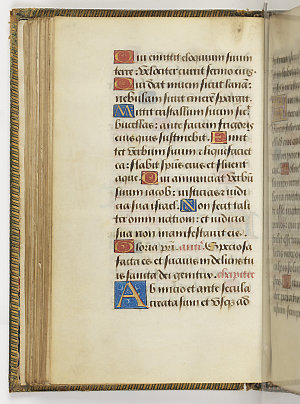 Qui emittit eloquium suum
terre: velociter currit sermo eius.
Qui dat nivem sicut lanam:
nebulam sicut cinerem spargit.
Mittit cristallum suum sicut
buccellas: ante faciem frigoris
eius quis sustinebit. Emit
tet verbum suum et liquefaciet
ea: flabit spiritus eius et fluent
aque. Qui annunciat verbum
suum iacob: iusticias et iudi
cia sua israel. Non fecit tali
ter omni nationi: et iudicia
sua non manifestavit eis.
Gloria patri. ant. Speciosa
facta es et suavis in deliciis tu
is sancta dei genitrix. Chapitre
Ab inicio et ante secula
creata sum et usque ad